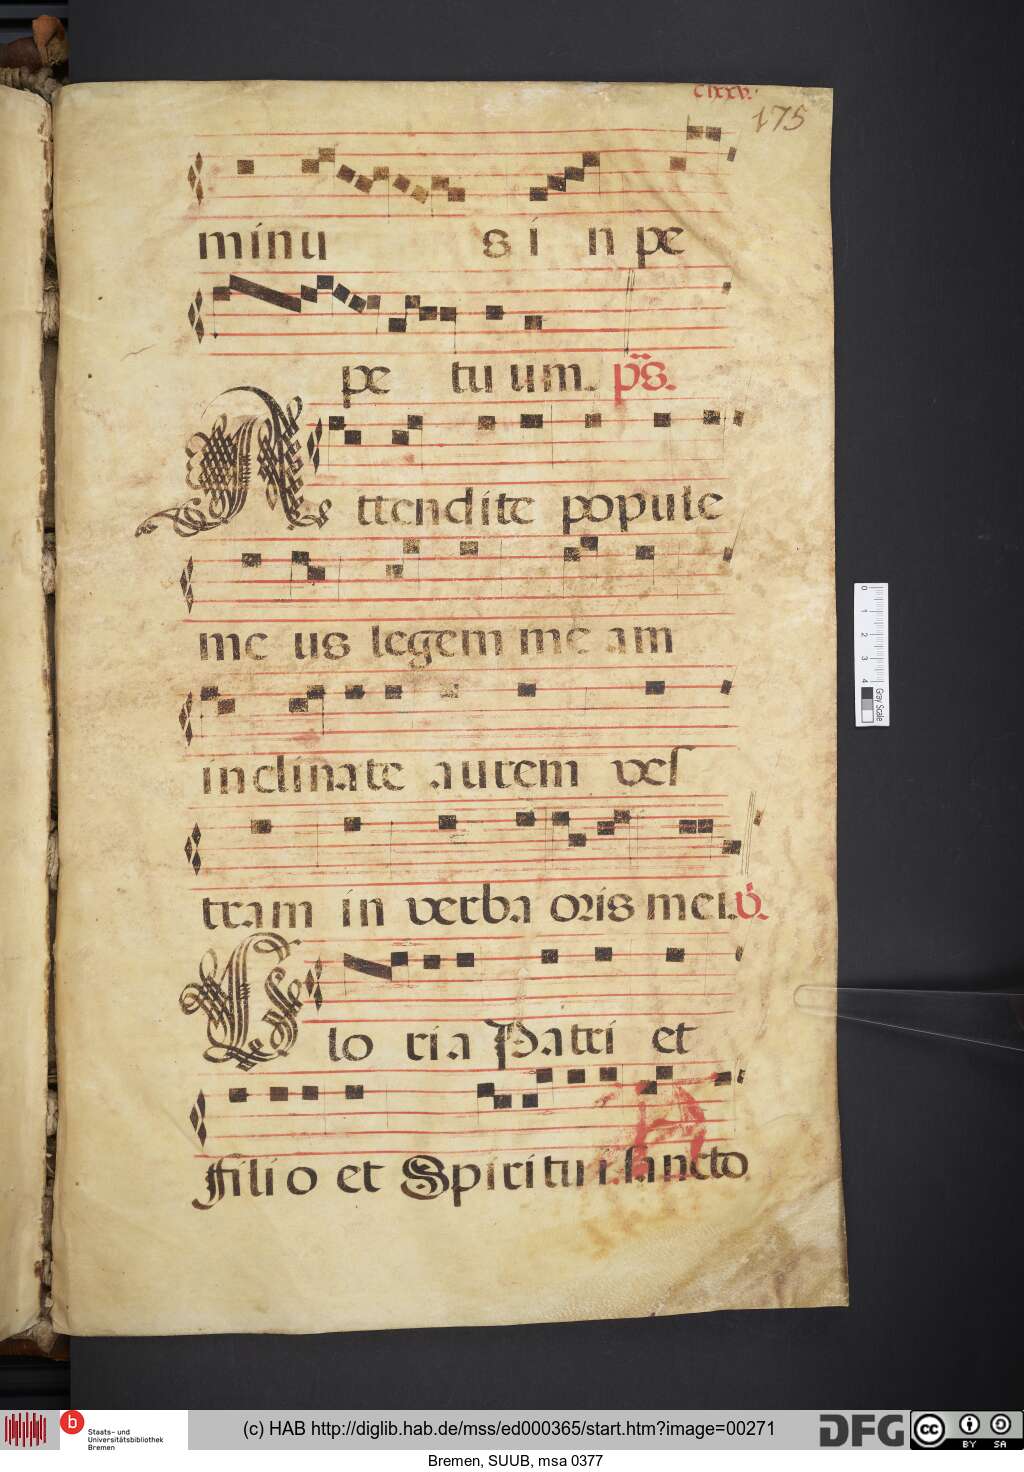 clxxv.
175
minu s i n pe
pe tu um. ps.
Attendite popule
me us legem me am
inclinate aurem ves
tram in verba oris mei. v.
Glo ria Patri et
filio et Spiritu i. sancto
0 1 2 3 4 Gray Scale
Staats- und Universitätsbibliothek Bremen
(c) HAB http://diglib.hab.de/mss/ed000365/start.htm?image=00271
DFG
cc BY SA
Bremen, SUUB, msa 0377